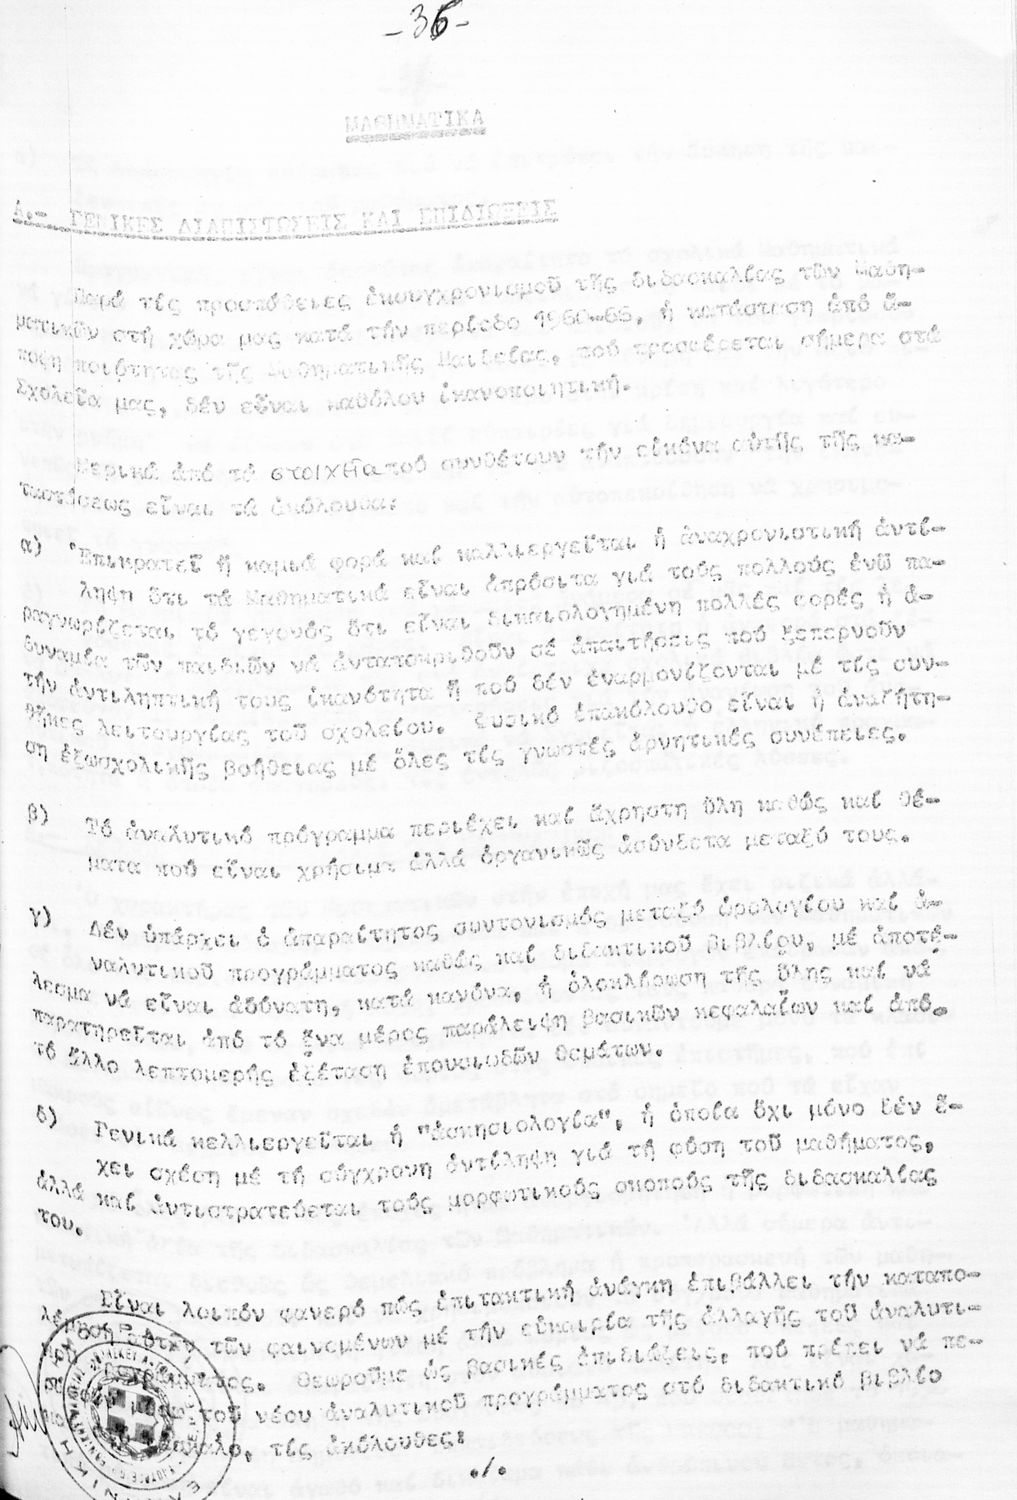 -36-
ΜΑΘΗΜΑΤΙΚΑ
Α.- ΓΕΝΙΚΕΣ ΔΙΑΠΙΣΤΩΣΕΙΣ ΚΑΙ ΕΠΙΔΙΩΞΕΙΣ
Παρά τίς προσπάθειες ἐκσυγχρονισμοῦ τῆς διδασκαλίας τῶν Μαθη-
ματικῶν στή χώρα μας κατά τήν περίοδο 1960-66, ἡ κατάσταση ἀπό ἄ-
ποψη ποιότητος τῆς Μαθηματικῆς Παιδείας, πού προσφέρεται σήμερα στά
Σχολεῖα μας, δέν εἶναι καθόλου ἱκανοποιητική.
Μερικά ἀπό τά στοιχεῖα πού συνθέτουν τήν εἰκόνα αὐτῆς τῆς κα-
ταστάσεως εἶναι τά ἀκόλουθα:
α) Ἐπικρατεῖ ἤ καμιά φορά καί καλλιεργεῖται ἡ ἀναχρονιστική ἀντί-
ληψη ὅτι τά Μαθηματικά εἶναι ἀπρόσιτα γιά τούς πολλούς ἐνῶ πα-
ραγνωρίζεται τό γεγονός ὅτι εἶναι δικαιολογημένη πολλές φορές ἡ ἀ-
δυναμία τῶν παιδιῶν νά ἀνταποκριθοῦν σέ ἀπαιτήσεις πού ξεπερνοῦν
τήν ἀντιληπτική τους ἱκανότητα ἤ πού δέν ἐναρμονίζονται μέ τίς συν-
θῆκες λειτουργίας τοῦ σχολείου. Φυσικό ἐπακόλουθο εἶναι ἡ ἀναζήτη-
ση ἐξωσχολικῆς βοήθειας μέ ὅλες τίς γνωστές ἀρνητικές συνέπειες.
β) Τό ἀναλυτικό πρόγραμμα περιέχει καί ἄχρηστη ὕλη καθώς καί θέ-
ματα πού εἶναι χρήσιμα ἀλλά ὀργανικῶς ἀσύνδετα μεταξύ τους.
γ) Δέν ὑπάρχει ὁ ἀπαραίτητος συντονισμός μεταξύ ὡρολογίου καί ἀ-
ναλυτικοῦ προγράμματος καθώς καί διδακτικοῦ βιβλίου, μέ ἀποτέ-
λεσμα νά εἶναι ἀδύνατη, κατά κανόνα, ἡ ὁλοκλήρωση τῆς ὕλης καί νά
παρατηρεῖται ἀπό τό ἕνα μέρος παράλειψη βασικῶν κεφαλαίων καί ἀπό
τό ἄλλο λεπτομερής ἐξέταση ἐπουσιωδῶν θεμάτων.
δ) Γενικά κελλιεργεῖται ἡ "ἀσκησιολογία", ἡ ὁποία ὄχι μόνο δέν ἔ-
χει σχέση μέ τή σύγχρονη ἀντίληψη γιά τή φύση τοῦ μαθήματος,
ἀλλά καί ἀντιστρατεύεται τούς μορφωτικούς σκοπούς τῆς διδασκαλίας
του.
Εἶναι λοιπόν φανερό πώς ἐπιτακτική ἀνάγκη ἐπιβάλλει τήν καταπο-
λέμηση αὐτῶν τῶν φαινομένων μέ τήν εὐκαιρία τῆς ἀλλαγῆς τοῦ ἀναλυτι-
κοῦ προγράμματος. Θεωροῦμε ὡς βασικές ἐπιδιώξεις, πού πρέπει νά πε-
μέσω τοῦ νέου ἀναλυτικοῦ προγράμματος στό διδακτικό βιβλίο
τίς ἀκόλουθες:
./.